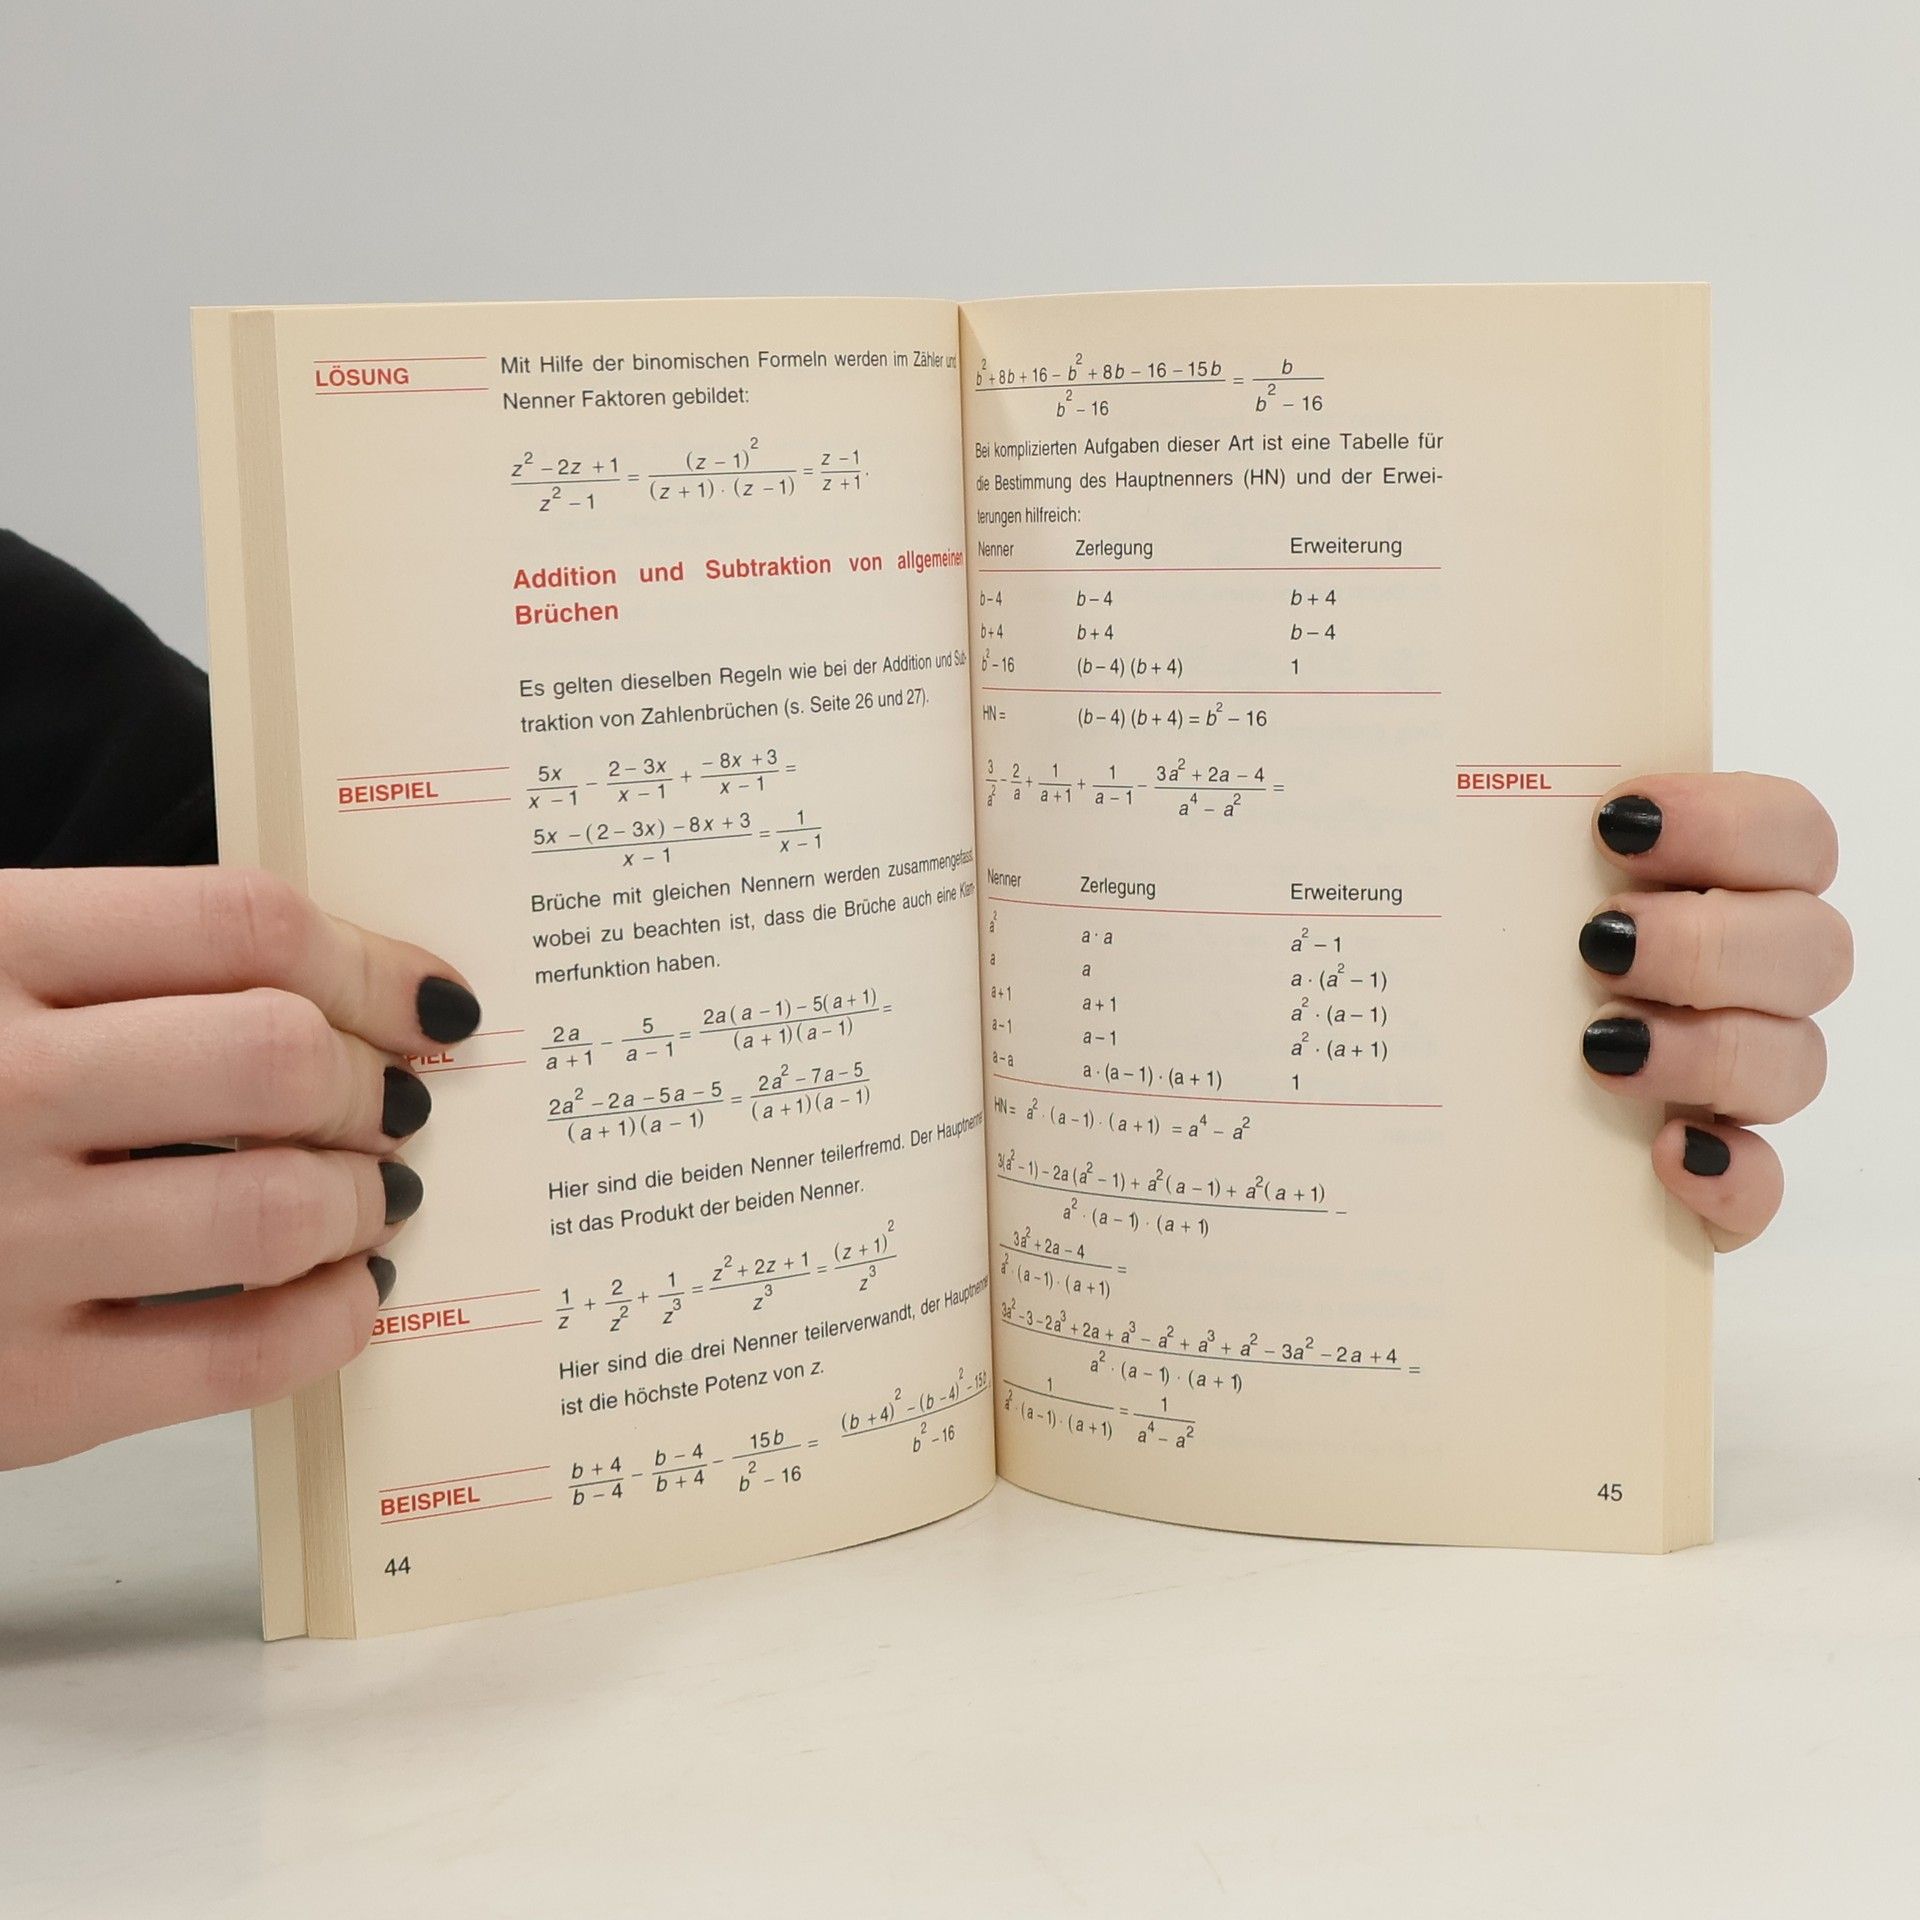 LÖSUNG
Mit Hilfe der binomischen Formeln werden im Zähler und
Nenner Faktoren gebildet:
(z² − 2z + 1)/(z² − 1) = (z − 1)²/((z + 1) · (z − 1)) = (z − 1)/(z + 1).
Addition und Subtraktion von allgemeinen
Brüchen
Es gelten dieselben Regeln wie bei der Addition und Sub-
traktion von Zahlenbrüchen (s. Seite 26 und 27).
BEISPIEL
5x/(x − 1) − (2 − 3x)/(x − 1) + (− 8x + 3)/(x − 1) =
(5x − (2 − 3x) − 8x + 3)/(x − 1) = 1/(x − 1)
Brüche mit gleichen Nennern werden zusammengefasst,
wobei zu beachten ist, dass die Brüche auch eine Klam-
merfunktion haben.
PIEL
2a/(a + 1) − 5/(a − 1) = (2a(a − 1) − 5(a + 1))/((a + 1)(a − 1)) =
(2a² − 2a − 5a − 5)/((a + 1)(a − 1)) = (2a² − 7a − 5)/((a + 1)(a − 1))
Hier sind die beiden Nenner teilerfremd. Der Hauptnenner
ist das Produkt der beiden Nenner.
BEISPIEL
1/z + 2/z² + 1/z³ = (z² + 2z + 1)/z³ = (z + 1)²/z³
Hier sind die drei Nenner teilerverwandt, der Hauptnenner
ist die höchste Potenz von z.
BEISPIEL
(b + 4)/(b − 4) − (b − 4)/(b + 4) − 15b/(b² − 16) = ((b + 4)² − (b − 4)² − 15b)/(b² − 16)
44
(b² + 8b + 16 − b² + 8b − 16 − 15b)/(b² − 16) = b/(b² − 16)
Bei komplizierten Aufgaben dieser Art ist eine Tabelle für
die Bestimmung des Hauptnenners (HN) und der Erwei-
terungen hilfreich:
Nenner Zerlegung Erweiterung
b − 4 b − 4 b + 4
b + 4 b + 4 b − 4
b² − 16 (b − 4) (b + 4) 1
HN = (b − 4) (b + 4) = b² − 16
BEISPIEL
3/a² − 2/a + 1/(a + 1) + 1/(a − 1) − (3a² + 2a − 4)/(a⁴ − a²) =
Nenner Zerlegung Erweiterung
a² a · a a² − 1
a a a · (a² − 1)
a + 1 a + 1 a² · (a − 1)
a − 1 a − 1 a² · (a + 1)
a − a a · (a − 1) · (a + 1) 1
HN = a² · (a − 1) · (a + 1) = a⁴ − a²
(3(a² − 1) − 2a(a² − 1) + a²(a − 1) + a²(a + 1))/(a² · (a − 1) · (a + 1)) −
(3a² + 2a − 4)/(a² · (a − 1) · (a + 1)) =
(3a² − 3 − 2a³ + 2a + a³ − a² + a³ + a² − 3a² − 2a + 4)/(a² · (a − 1) · (a + 1)) =
1/(a² · (a − 1) · (a + 1)) = 1/(a⁴ − a²)
45